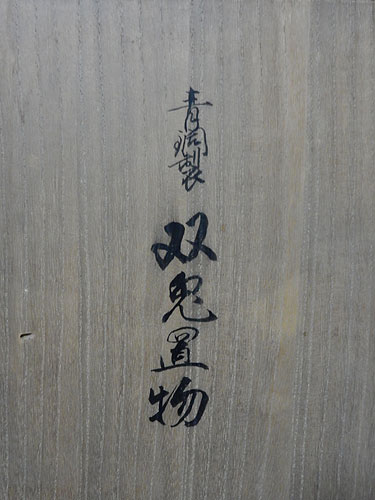 青銅製
双兎置物